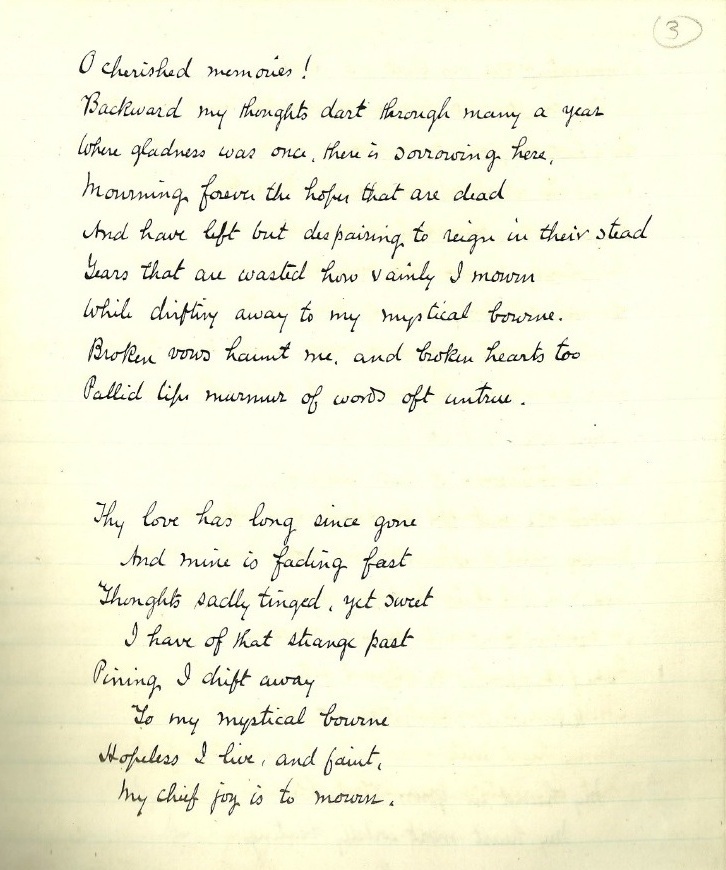 3
O cherished memories!
Backward my thoughts dart through many a year
Where gladness was once, there is sorrowing here,
Mourning forever the hopes that are dead
And have left but despairing to reign in their stead
Years that are wasted how vainly I mourn
While drifting away to my mystical bourne.
Broken vows haunt me, and broken hearts too
Pallid lips murmur of words oft untrue.
Thy love has long since gone
And mine is fading fast
Thoughts sadly tinged, yet sweet
I have of that strange past
Pining I drift away
To my mystical bourne
Hopeless I live, and faint,
My chief joy is to mourn.